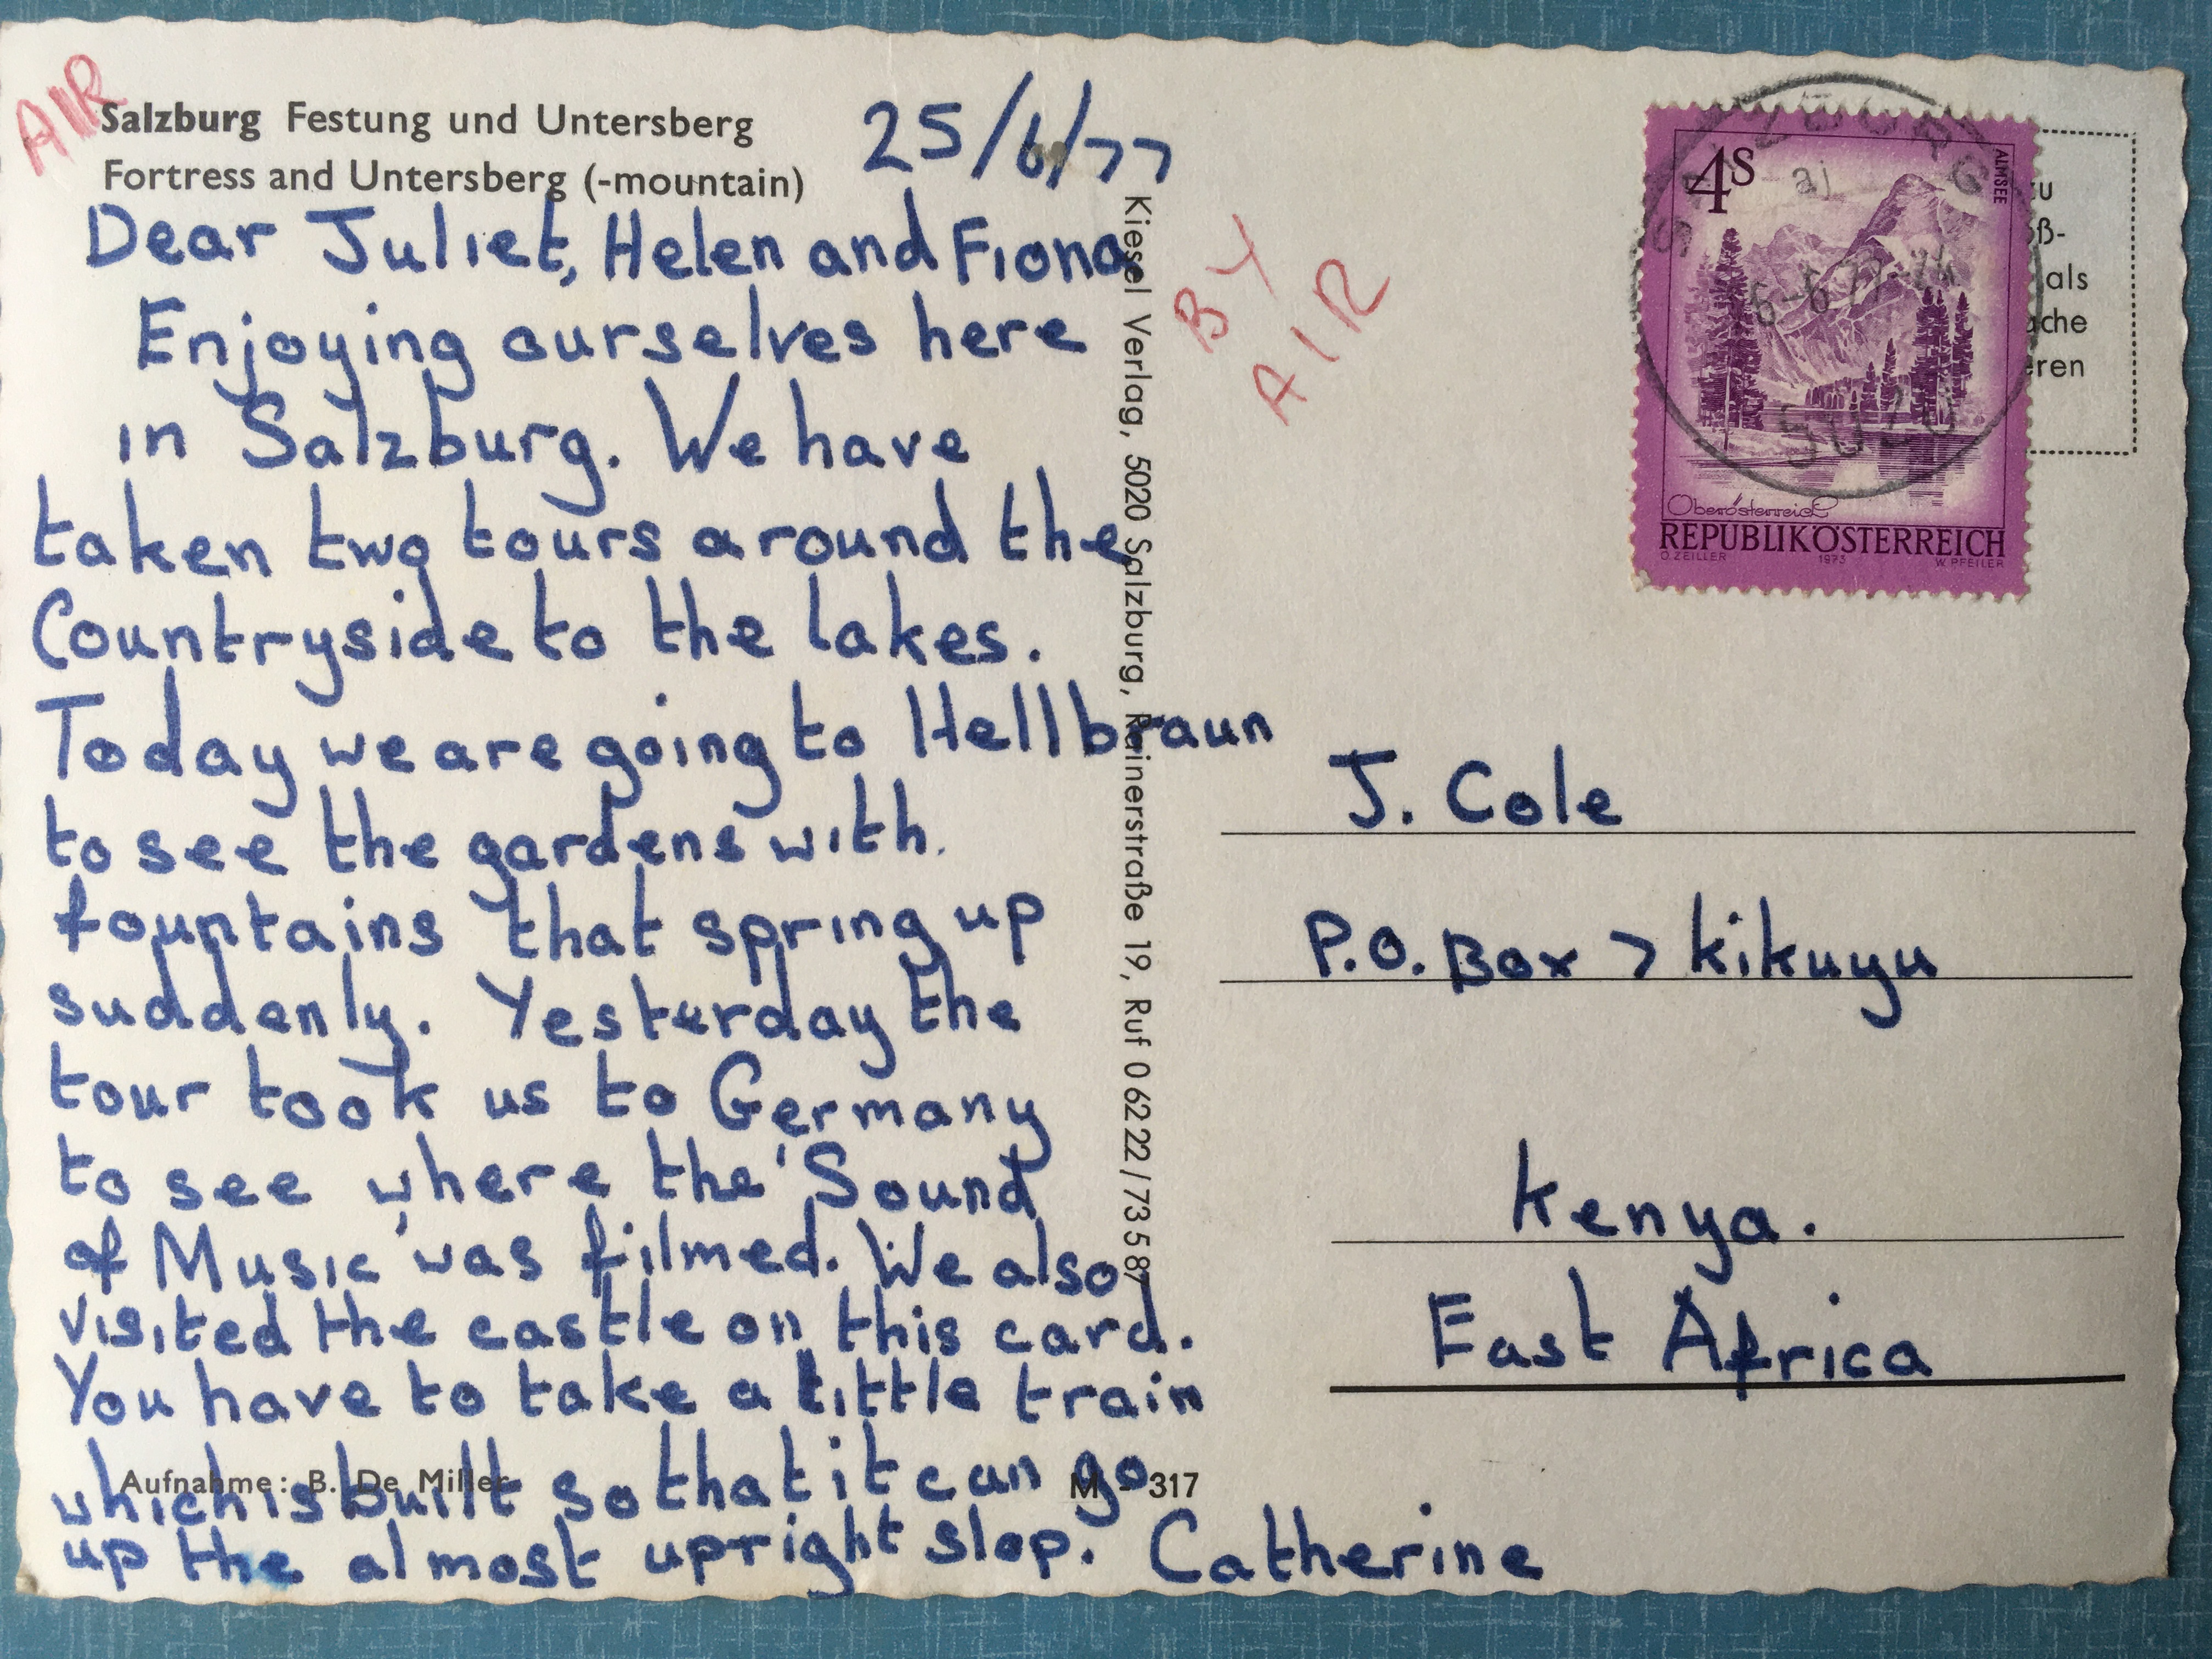 AIR
Salzburg Festung und Untersberg
Fortress and Untersberg (-mountain)
25/6/77
Dear Juliet, Helen and Fiona
Enjoying ourselves here
in Salzburg. We have
taken two tours around the
Countryside to the lakes.
Today we are going to Hellbraun
to see the gardens with.
fountains that spring up
suddenly. Yesterday the
tour took us to Germany
to see where the 'Sound
of Music' was filmed. We also
visited the castle on this card.
You have to take a little train
which is built so that it can go
up the almost upright slop. Catherine
Aufnahme: B. De Miller
M - 317
Kiesel Verlag, 5020 Salzburg, Rainerstraße 19, Ruf 0 62 22 / 73 5 87
BY
AIR
4S
ALMSEE
Oberösterreich
REPUBLIK ÖSTERREICH
O. ZEILLER 1973 W. PFEILER
SALZBURG
5020
zu
als
J. Cole
P.O. Box 7 Kikuyu
Kenya.
East Africa